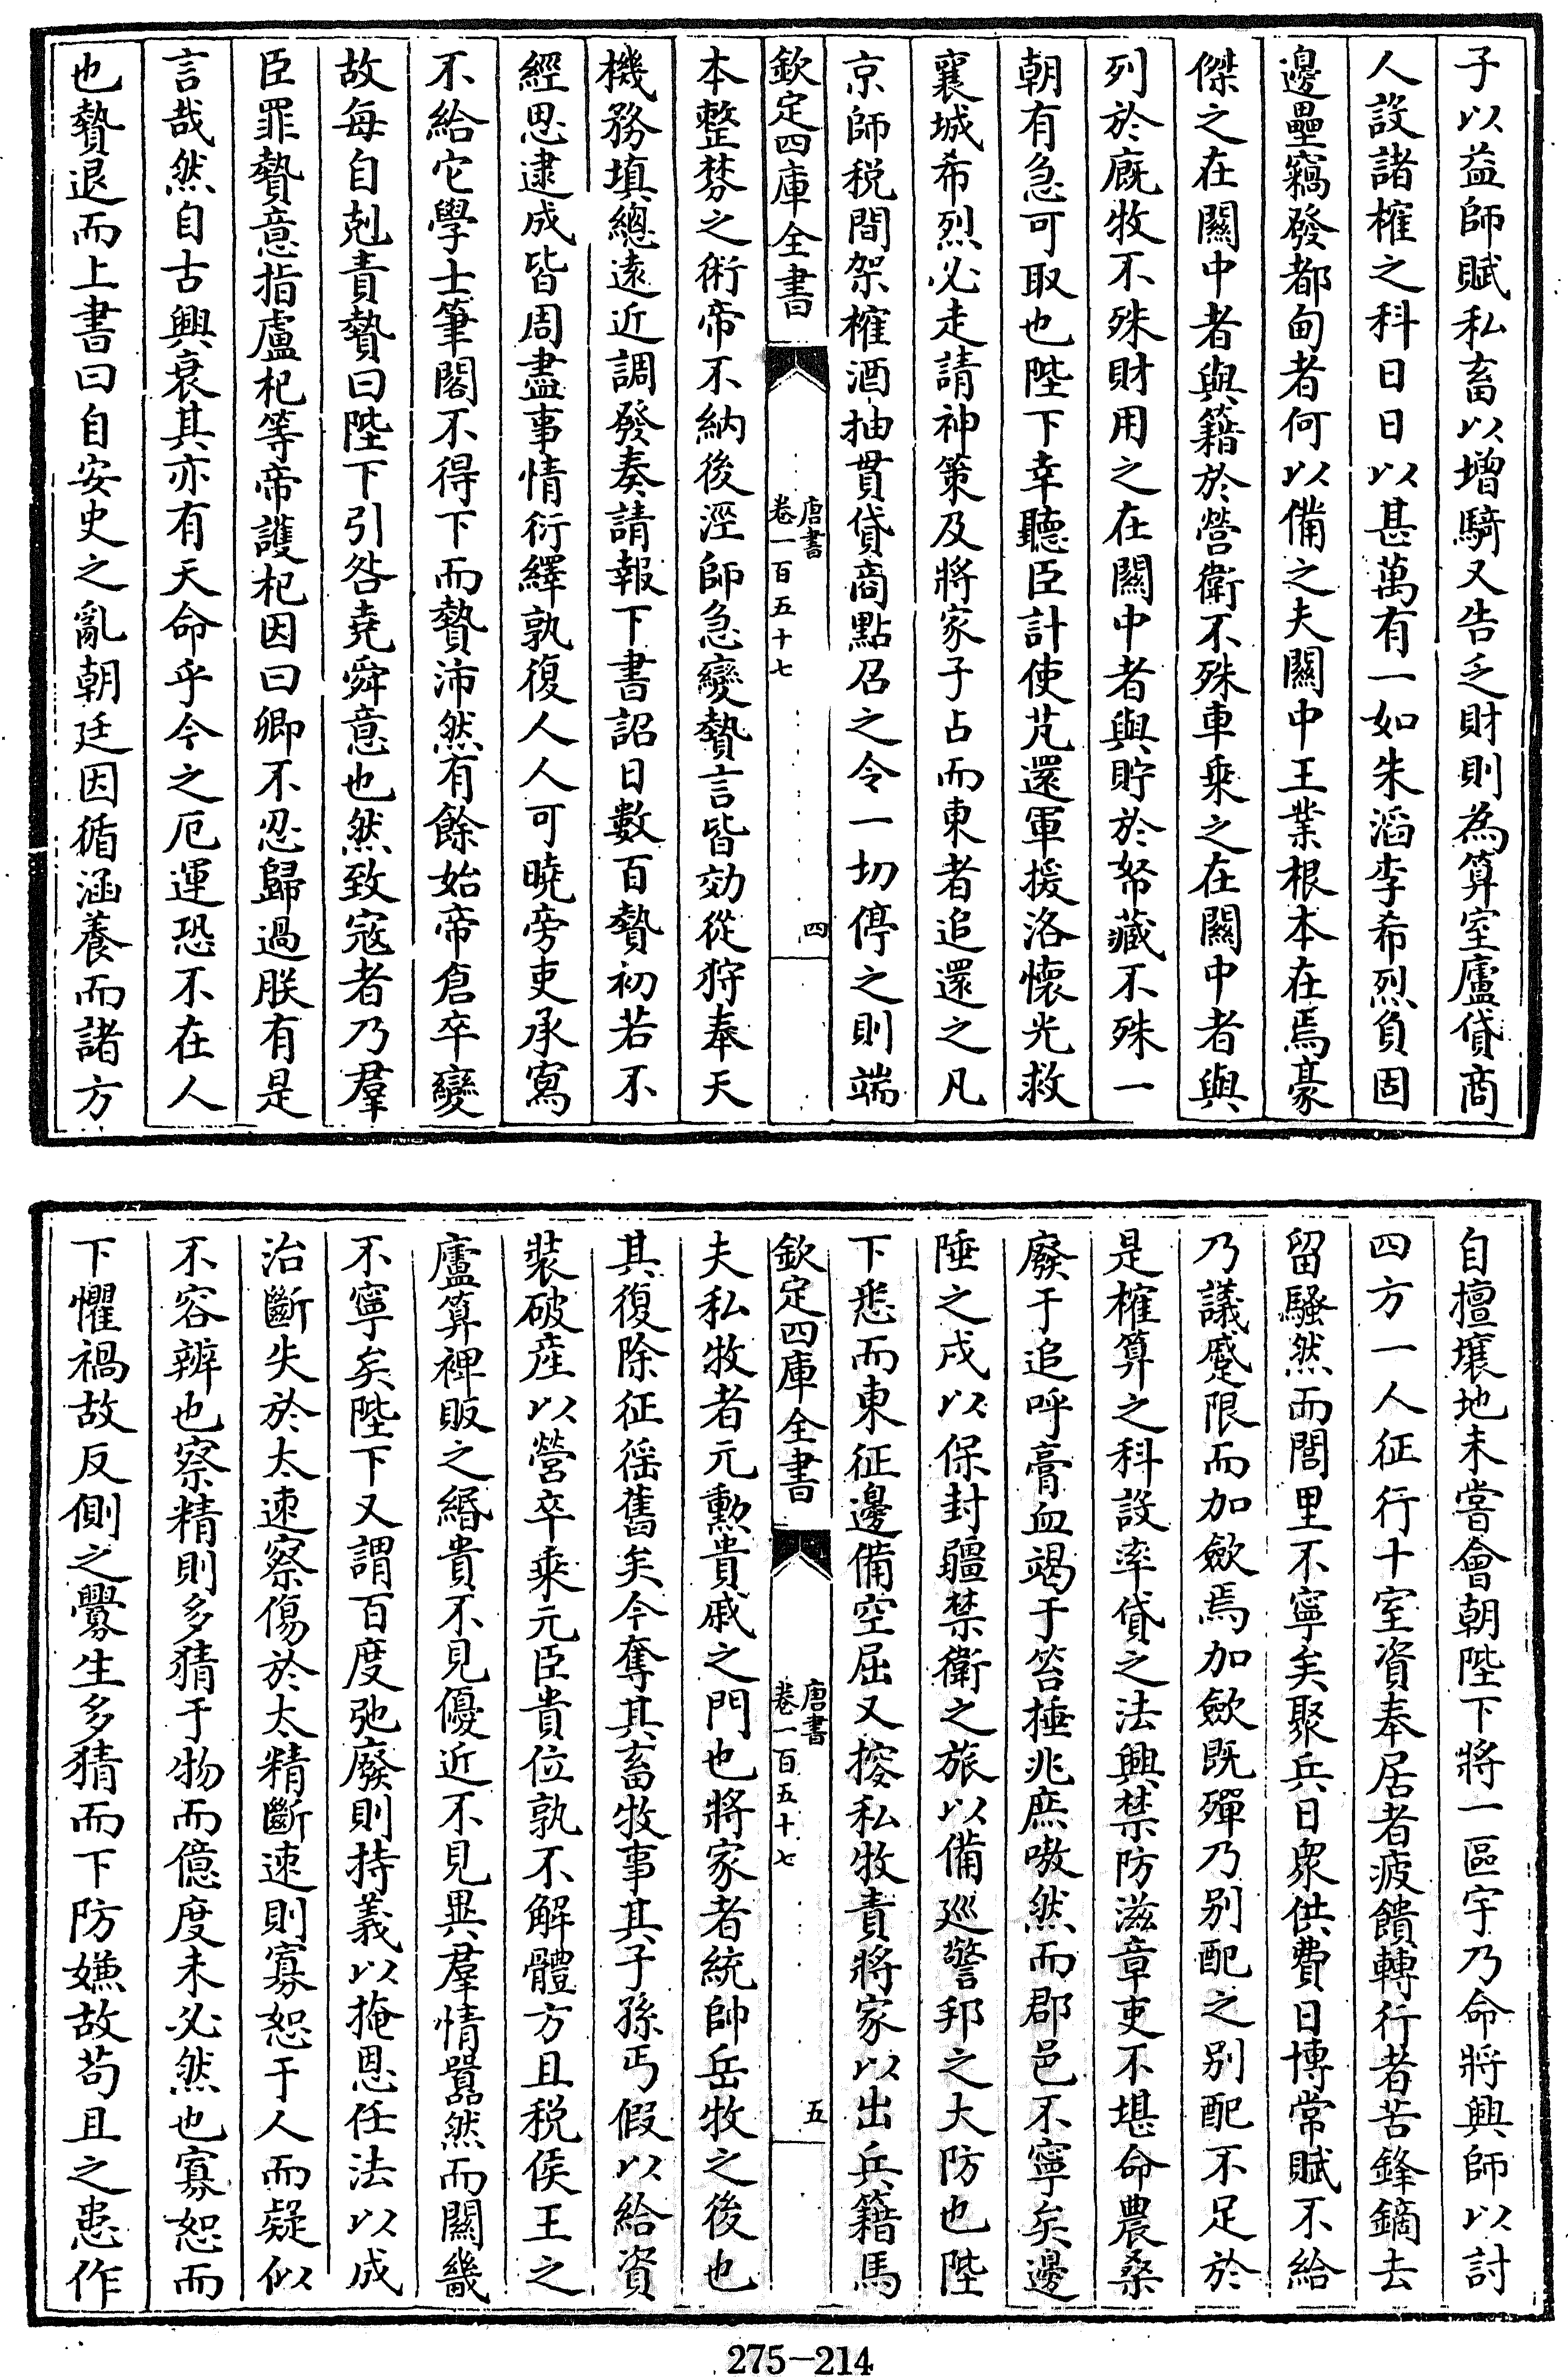 子以益師賦私畜以增騎又告乏財則為算室廬貸商
人設諸榷之科日日以甚萬有一如朱滔李希烈負固
邊壘竊發都甸者何以備之夫關中王業根本在焉豪
傑之在關中者與籍於營衛不殊車乘之在關中者與
列於廐牧不殊財用之在關中者與貯於帑藏不殊一
朝有急可取也陛下幸聽臣計使芃還軍援洛懷光救
襄城希烈必走請神策及將家子占而東者追還之凡
京師税間架榷酒抽貫貸商點召之令一切停之則端
欽定四庫全書
唐書
卷一百五十七
四
本整棼之術帝不納後涇師急變贄言皆効從狩奉天
機務填總遠近調發奏請報下書詔日數百贄初若不
經思逮成皆周盡事情衍繹孰復人人可曉旁吏承寫
不給它學士筆閣不得下而贄沛然有餘始帝倉卒變
故每自剋責贄曰陛下引咎堯舜意也然致寇者乃羣
臣罪贄意指盧杞等帝護杞因曰卿不忍歸過朕有是
言哉然自古興衰其亦有天命乎今之厄運恐不在人
也贄退而上書曰自安史之亂朝廷因循涵養而諸方
自擅壤地未嘗會朝陛下將一區宇乃命將興師以討
四方一人征行十室資奉居者疲饋轉行者苦鋒鏑去
留騷然而閭里不寧矣聚兵日衆供費日博常賦不給
乃議蹙限而加斂焉加斂既殫乃别配之别配不足於
是榷算之科設率貸之法興禁防滋章吏不堪命農桑
廢于追呼膏血竭于笞捶兆庶嗷然而郡邑不寧矣邊
陲之戍以保封疆禁衛之旅以備巡警邦之大防也陛
下悉而東征邊備空屈又搜私牧責將家以出兵籍馬
欽定四庫全書
唐書
卷一百五十七
五
夫私牧者元勲貴戚之門也將家者統帥岳牧之後也
其復除征徭舊矣今奪其畜牧事其子孫丐假以給資
裝破産以營卒乘元臣貴位孰不解體方且税侯王之
廬算裨販之緡貴不見優近不見異羣情囂然而關畿
不寧矣陛下又謂百度弛廢則持義以掩恩任法以成
治斷失於太速察傷於太精斷速則寡恕于人而疑似
不容辨也察精則多猜于物而億度未必然也寡恕而
下懼禍故反側之釁生多猜而下防嫌故苟且之患作
275-214